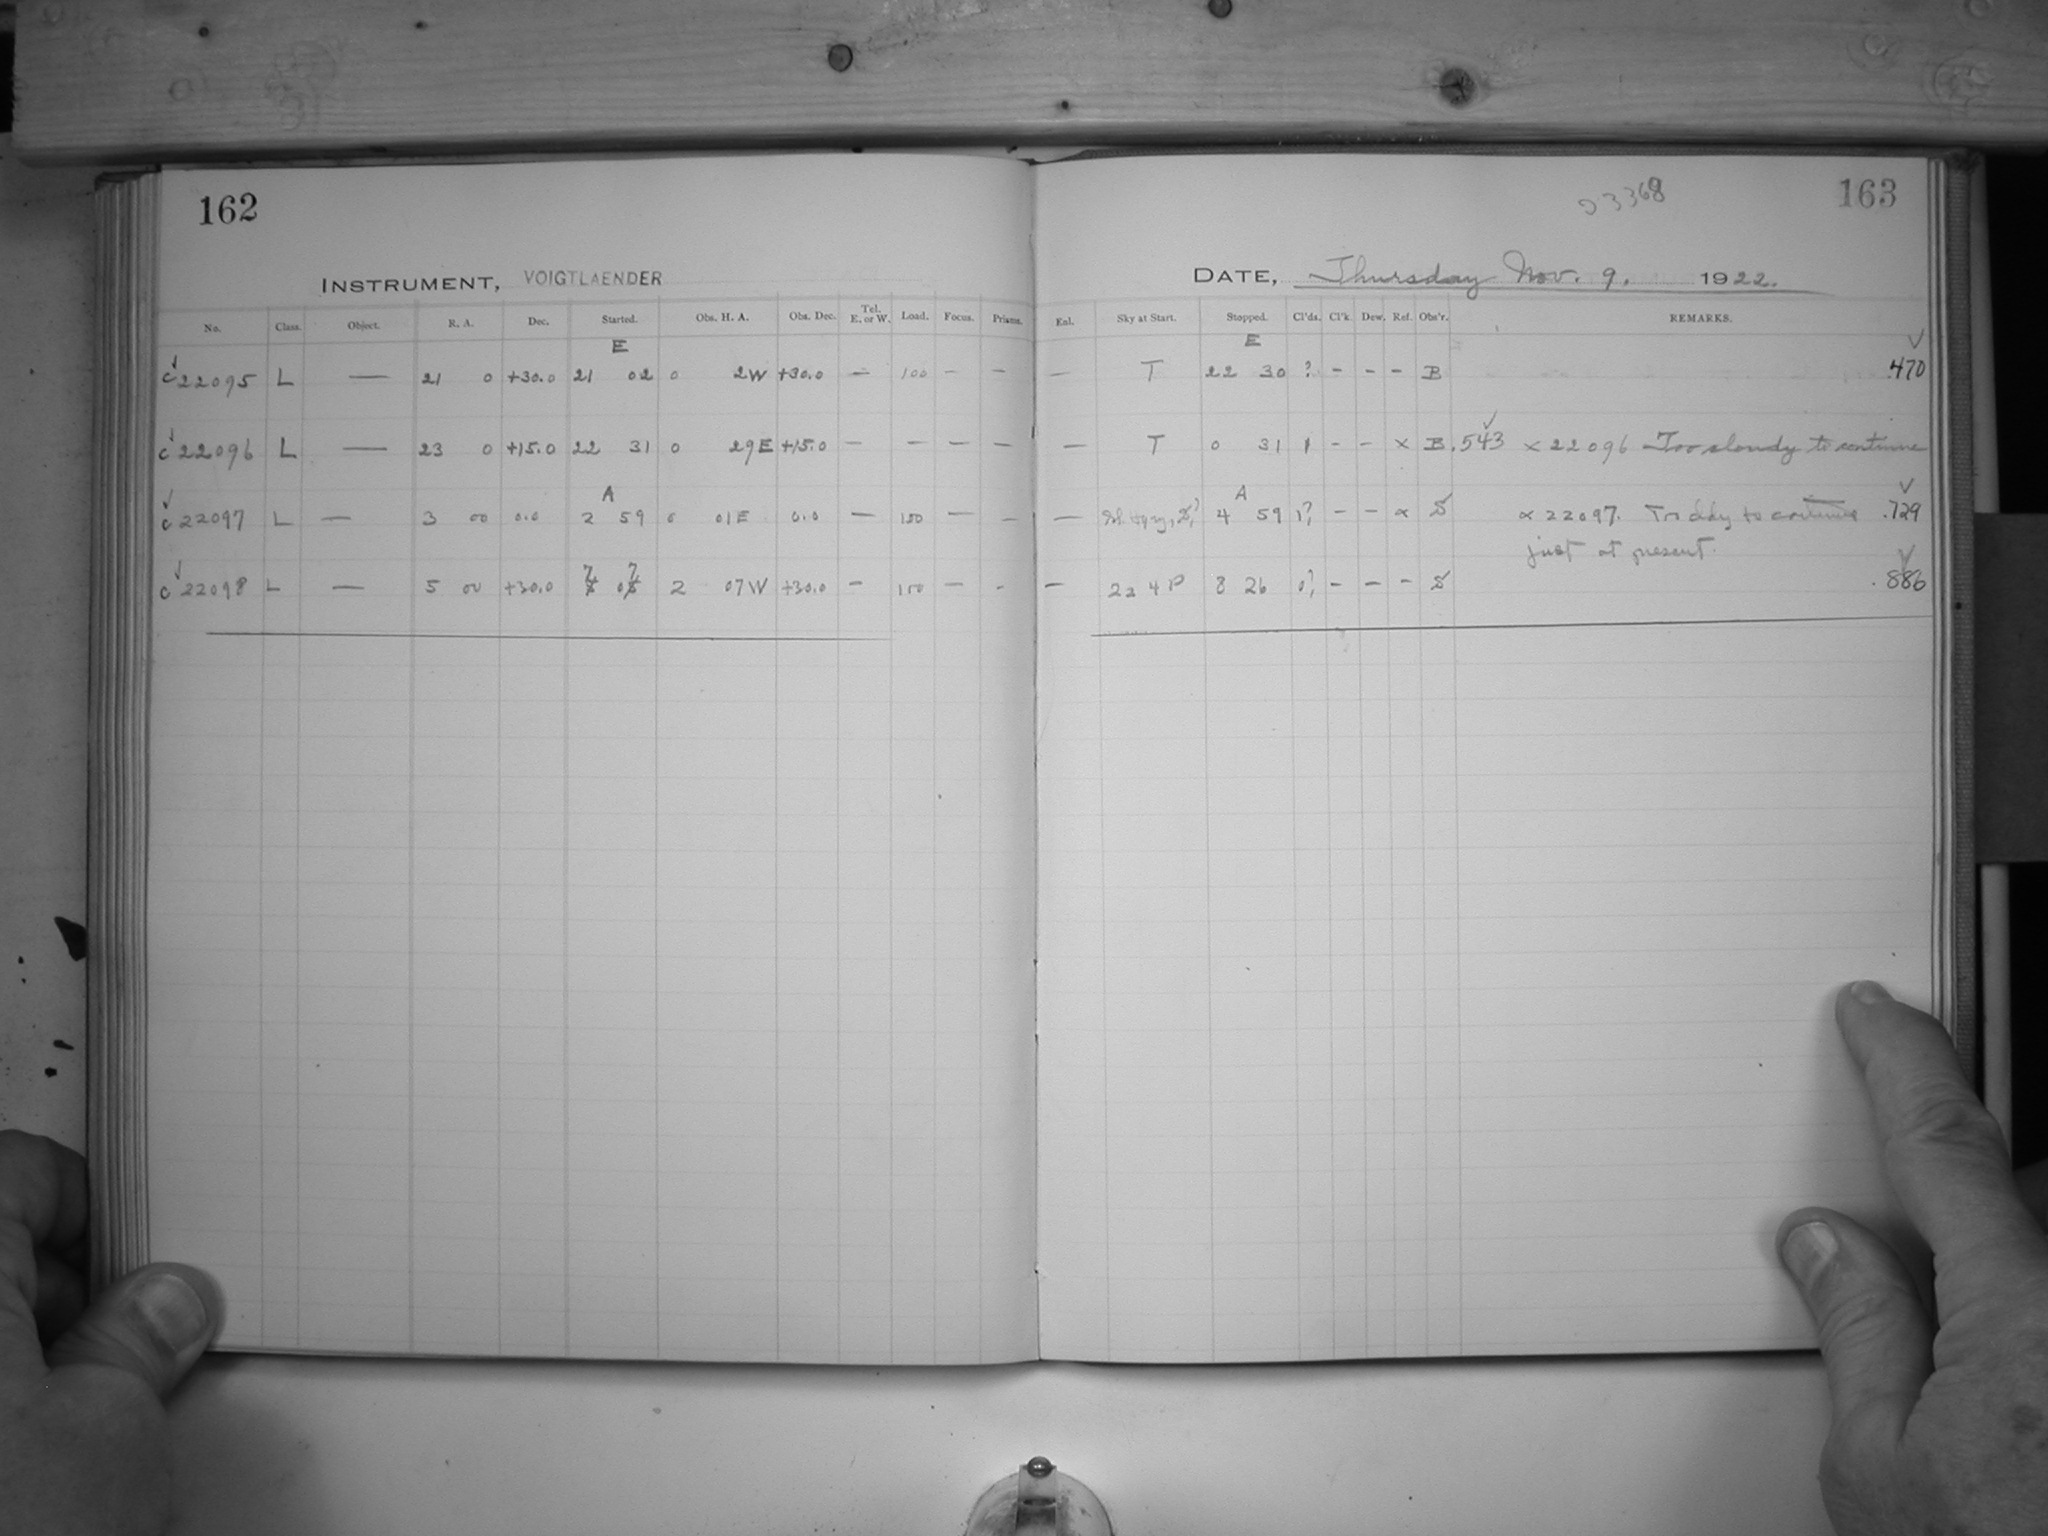 162
INSTRUMENT, VOIGTLAENDER
No. Class. Object. R. A. Dec. Started. Obs. H. A. Obs. Dec. Tel. E. or W. Load. Focus. Prisms.
E
c22095 L — 21 0 +30.0 21 02 0 2W +30.0 — 100 - -
c22096 L — 23 0 +15.0 22 31 0 29E +15.0 — — — —
A
c22097 L — 3 00 0.0 2 59 0 01E 0.0 — 100 — -
c22098 L — 5 00 +30.0 7 07 2 07W +30.0 - 100 - -
163
03368
DATE, Thursday Nov. 9. 1922.
Enl. Sky at Start. Stopped. Cl'ds. Cl'k. Dew. Ref. Obs'r. REMARKS.
E
— T 22 30 ? - - - B .470
— T 0 31 1 - - x B .543 x 22096 Too cloudy to continue
A
— 4 59 1? - - x S x 22097. to continue .729
just at present.
— 22 4 P 8 26 0? - - - S .886